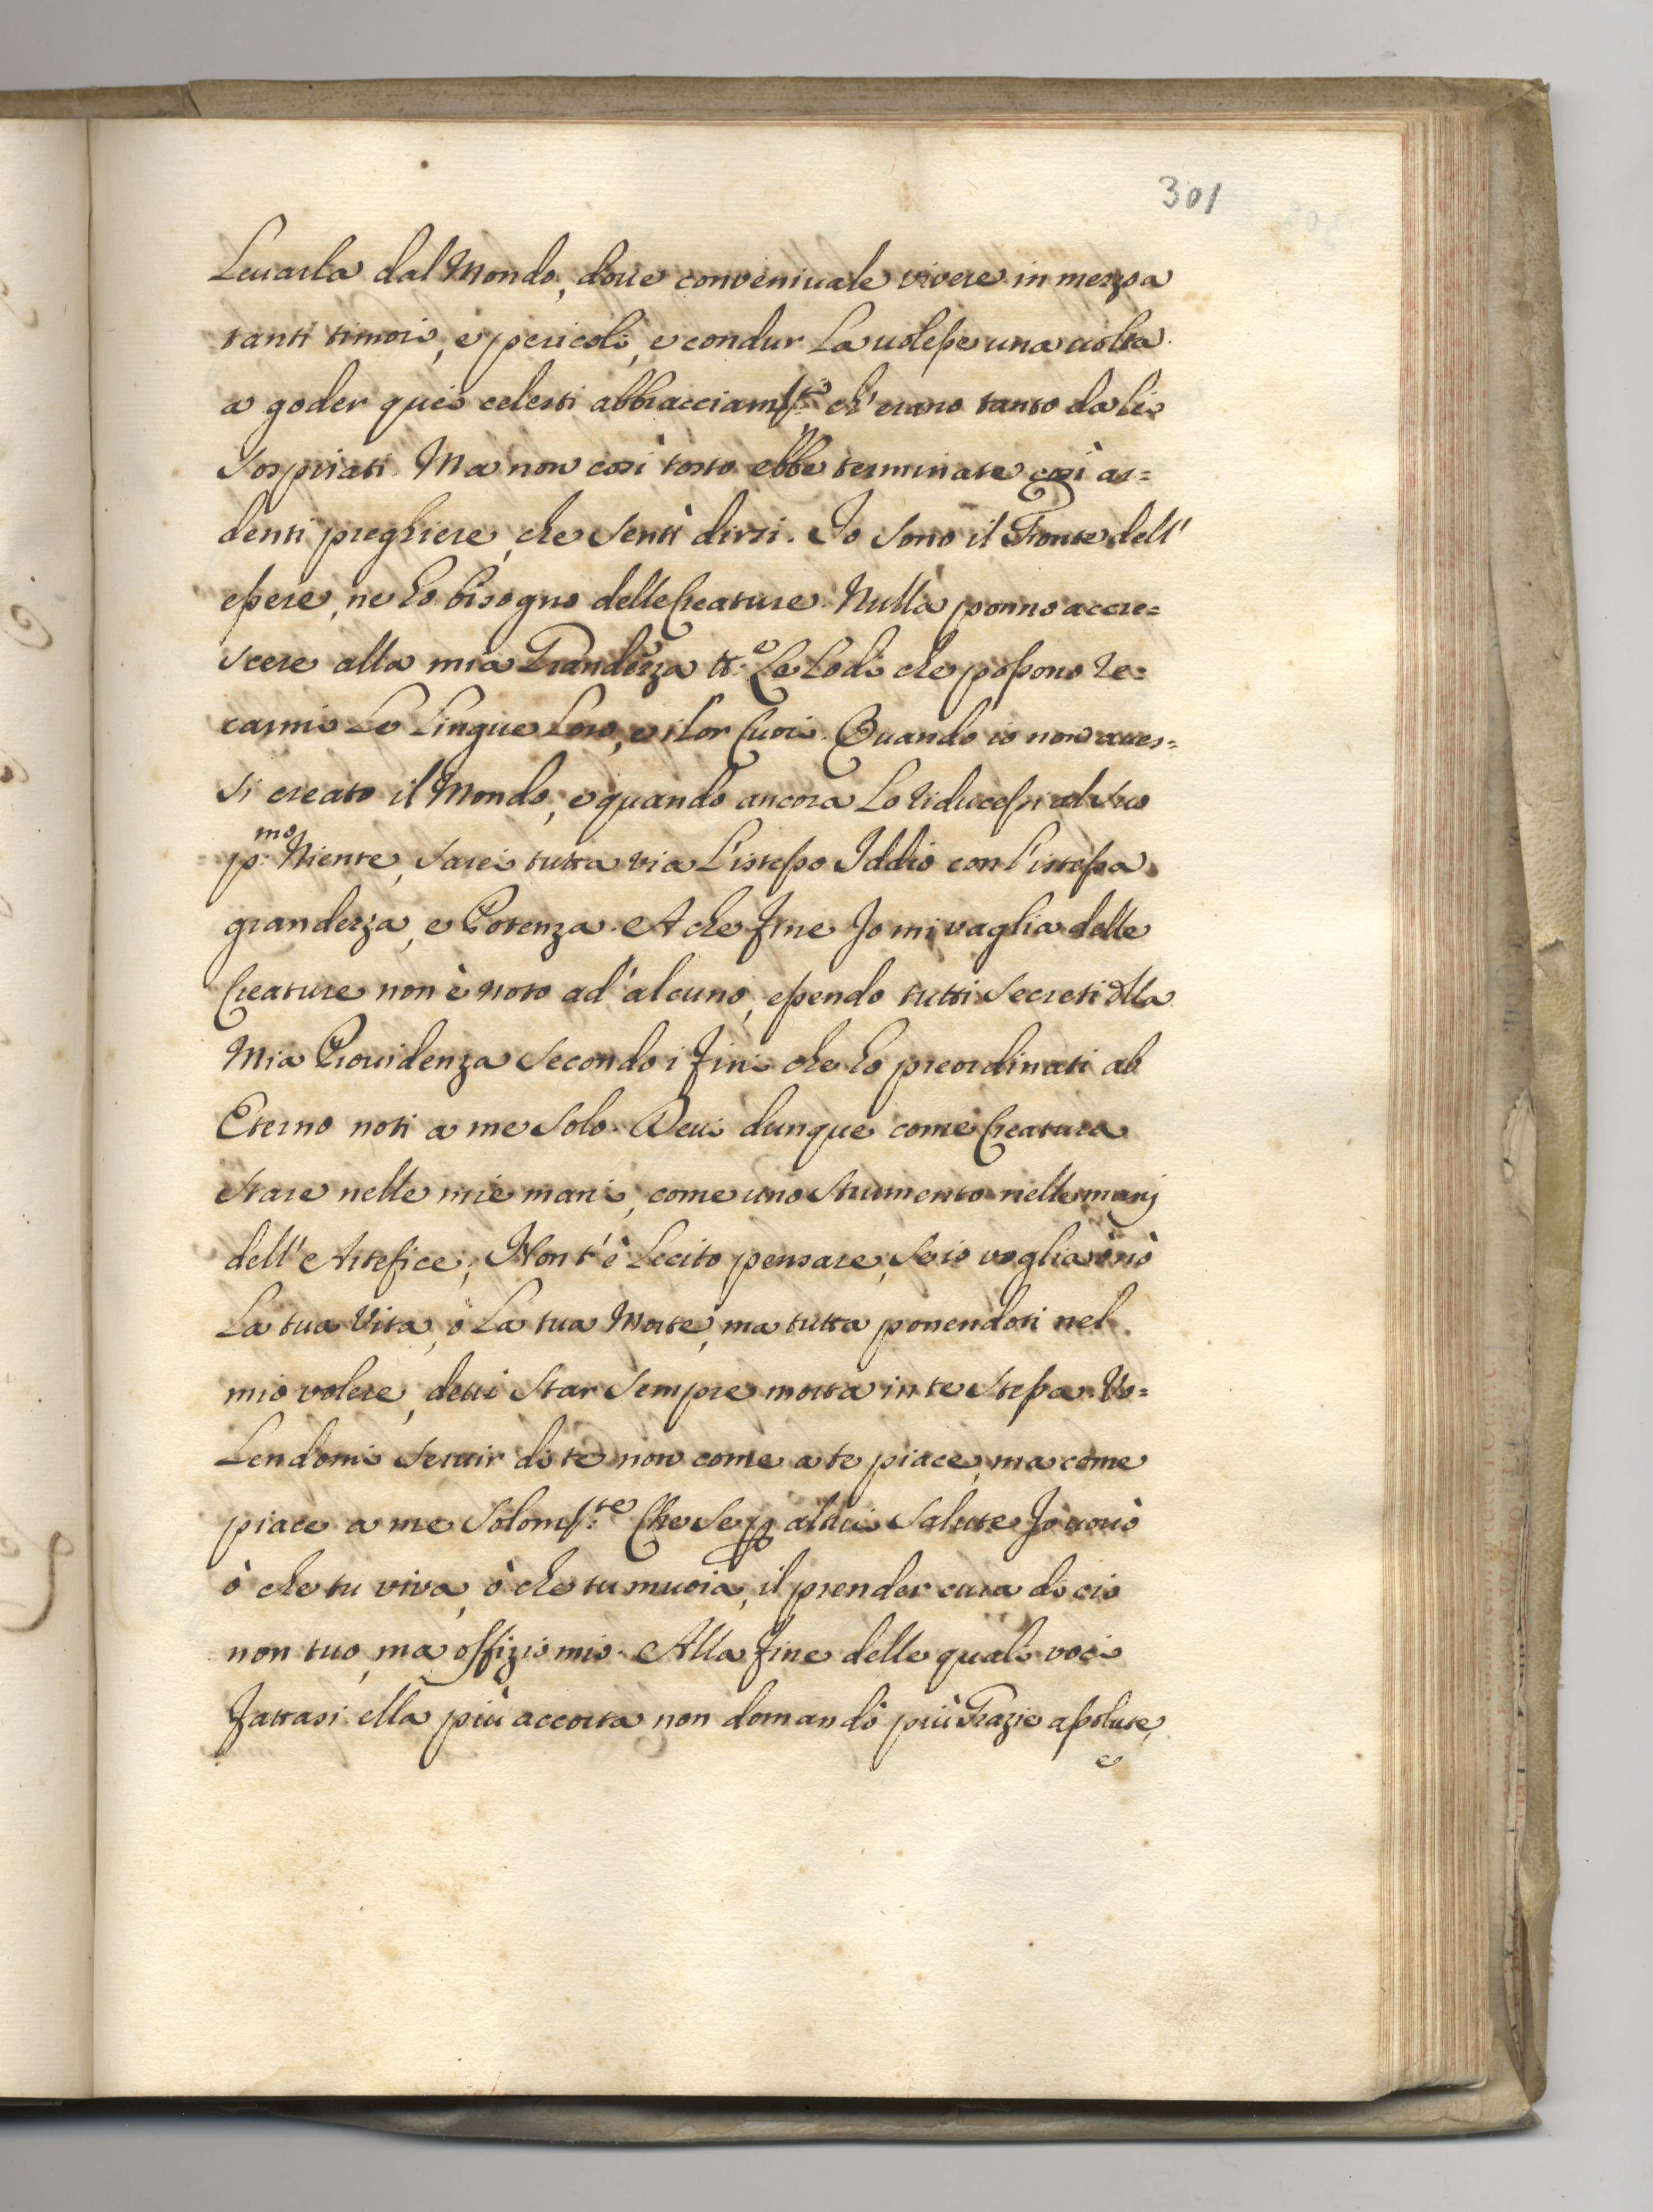 301
Leuarla dal Mondo, doue conveniuale vivere in mezzo a
tanti timori, e pericoli, e condur La uolesse una uolta
a goder quei celesti abbracciam.ti ch'erano tanto da lei
Sospirati. Ma non così tosto ebbe terminate così ar=
denti preghiere, che Sentì dirsi. Io Sono il Fronte dell'
essere, ne ho bisogno delle Creature. Nulla ponno accre=
scere alla mia Grandezza tt.e Le Lodi che possono re=
carmi Le Lingue Loro, e i Lor Cuori. Quando io non aues=
si creato il Mondo, e quando ancora Lo riducessi al Suo
p.mo Niente, Sarei tutta via L'istesso Iddio con l'istessa
grandezza, e Potenza. A che fine Io mi vaglia delle
Creature non è noto ad' alcuno, essendo tutti Secreti della
Mia Prouidenza Secondo i fini che ho preordinati ab
Eterno noti a me Solo. Deui dunque come Creatura
Stare nelle mie mani, come uno Strumento nelle manj
dell'Artefice; Non t'è Lecito pensare, Se io voglia ò nò
La tua Vita, ò La tua Morte, ma tutta ponendoti nel
mio volere, deui Star Sempre morta in te Stessa. Vo=
Lendomi Seruir di te non come a te piace, ma come
piace a me Solom.te Che Se p altrui Salute Io uorrò
ò che tu viva, ò che tu muoia, il prender cura di ciò
non tuo, ma offizio mio. Alla fine delle quali voci
fattasi ella più accorta non domandò più Grazie assolute,
e